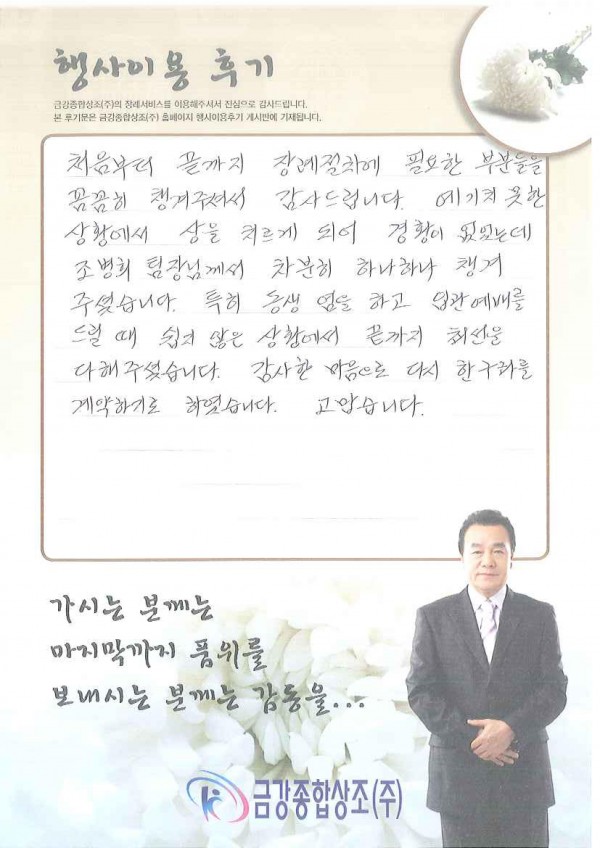 행사이용 후기
금강종합상조(주)의 장례서비스를 이용해주셔서 진심으로 감사드립니다.
본 후기문은 금강종합상조(주) 홈페이지 행사이용후기 게시판에 기재됩니다.
처음부터 끝까지 장례절차에 필요한 부분들을
꼼꼼히 챙겨주셔서 감사드립니다. 예기치 못한
상황에서 상을 치르게 되어 경황이 없었는데
조병희 팀장님께서 차분히 하나하나 챙겨
주셨습니다. 특히 동생 염을 하고 입관예배를
드릴 때 쉽지 않은 상황에서 끝까지 최선을
다해주셨습니다. 감사한 마음으로 다시 한구좌를
계약하기로 하였습니다. 고맙습니다.
가시는 분께는
마지막까지 품위를
보내시는 분께는 감동을...
금강종합상조(주)